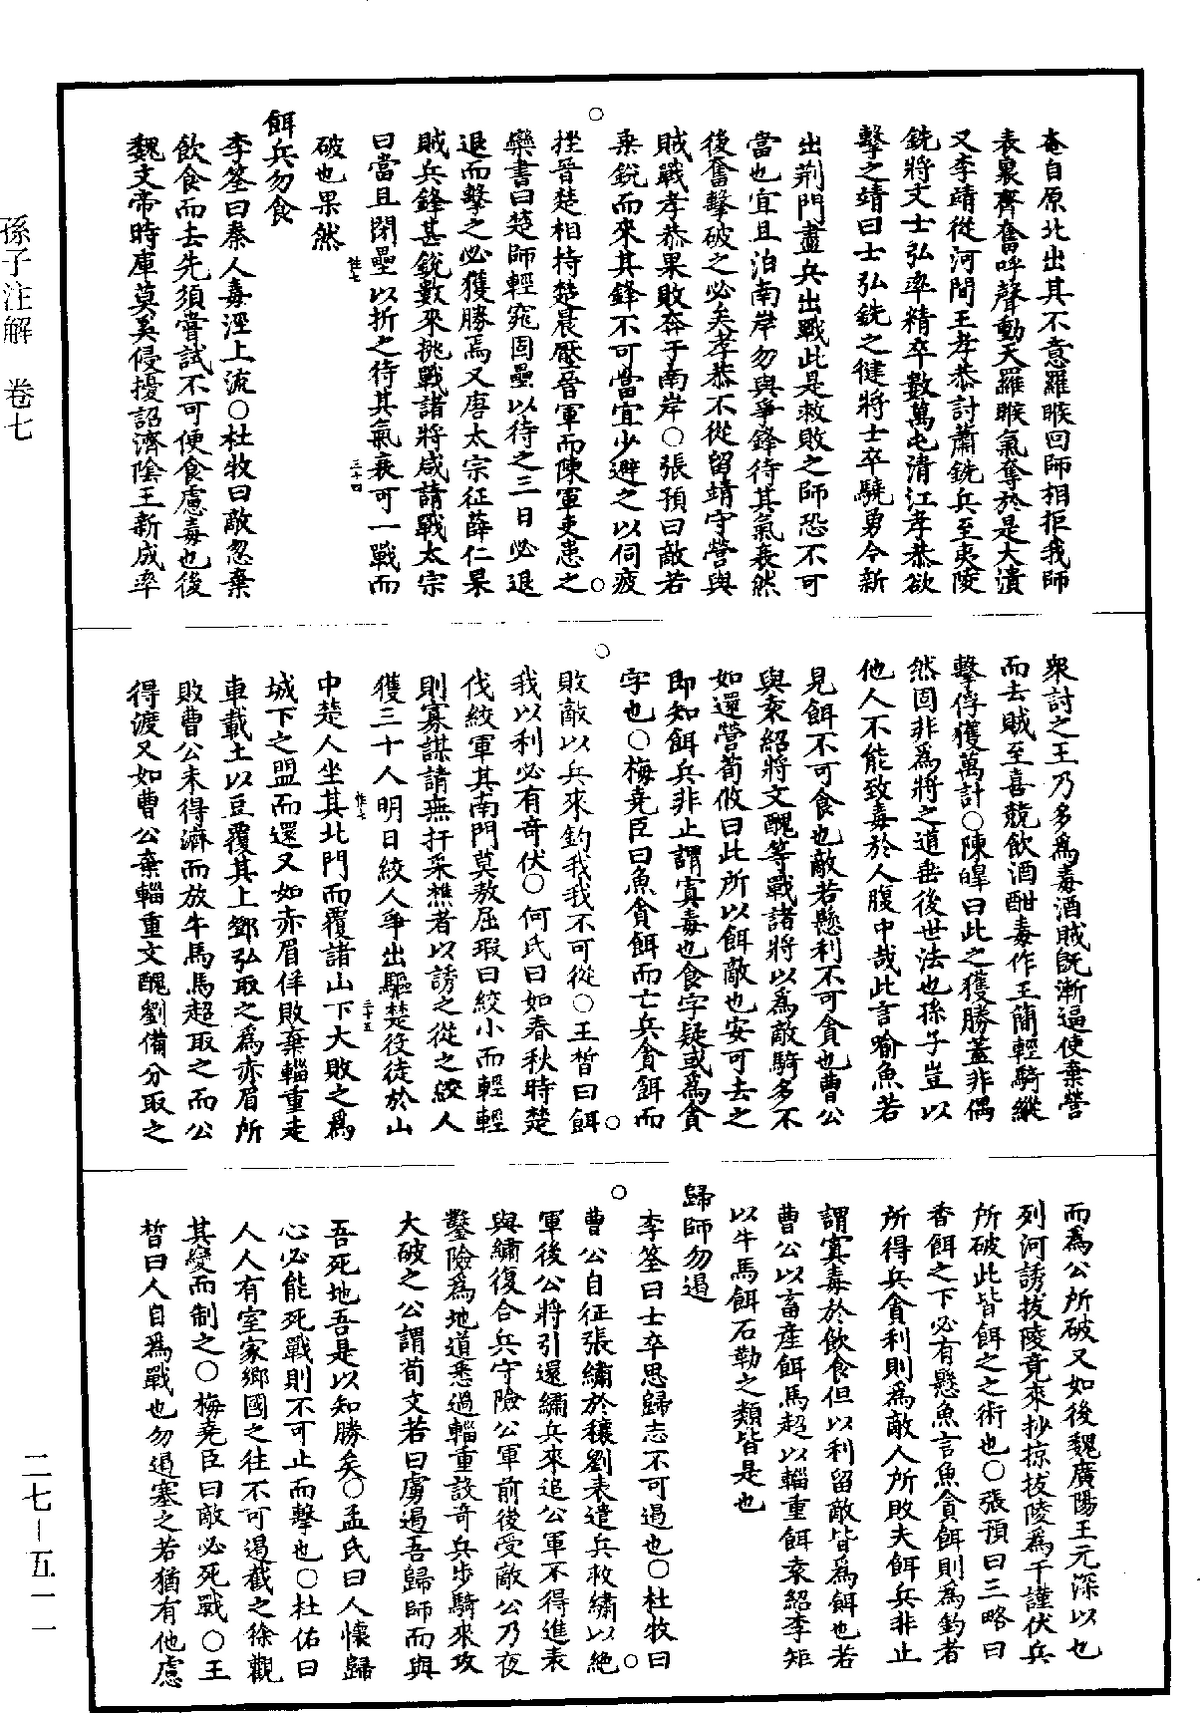 奄自原北出其不意羅睺回師相拒我師
表裏齊奮呼聲動天羅睺氣奪於是大潰
又李靖從河間王孝恭討蕭銑兵至夷陵
銑將文士弘率精卒數萬屯清江孝恭欲
擊之靖曰士弘銑之健將士卒驍勇今新
出荆門盡兵出戰此是救敗之師恐不可
當也宜且泊南岸勿與爭鋒待其氣衰然
後奮擊破之必矣孝恭不從留靖守營與
賊戰孝恭果敗奔于南岸○張預曰敵若
乘銳而來其鋒不可當宜少避之以伺疲
挫晉楚相持楚晨壓晉軍而陳軍吏患之
欒書曰楚師輕窕固壘以待之三日必退
退而擊之必獲勝焉又唐太宗征薛仁杲
賊兵鋒甚銳數來挑戰諸將咸請戰太宗
曰當且閉壘以折之待其氣衰可一戰而
破也果然
餌兵勿食
李筌曰秦人毒涇上流○杜牧曰敵忽棄
飲食而去先須嘗試不可便食慮毒也後
魏文帝時庫莫奚侵擾詔濟陰王新成率
衆討之王乃多爲毒酒賊旣漸逼使棄營
而去賊至喜競飲酒酣毒作王簡輕騎縱
擊俘獲萬計○陳皥曰此之獲勝蓋非偶
然固非爲將之道垂後世法也孫子豈以
他人不能致毒於人腹中哉此言喻魚若
見餌不可食也敵若懸利不可貪也曹公
與袁紹將文醜等戰諸將以爲敵騎多不
如還營荀攸曰此所以餌敵也安可去之
即知餌兵非止謂寘毒也食字疑或爲貪
字也○梅堯臣曰魚貪餌而亡兵貪餌而
敗敵以兵來釣我我不可從○王晳曰餌
我以利必有奇伏○何氏曰如春秋時楚
伐絞軍其南門莫敖屈瑕曰絞小而輕輕
則寡謀請無扞采樵者以誘之從之絞人
獲三十人明日絞人爭出驅楚役徒於山
中楚人坐其北門而覆諸山下大敗之爲
城下之盟而還又如赤眉佯敗棄輜重走
車載土以豆覆其上鄧弘取之爲赤眉所
敗曹公未得濟而放牛馬馬超取之而公
得渡又如曹公棄輜重文醜劉備分取之
而爲公所破又如後魏廣陽王元深以也
列河誘拔陵竟來抄掠拔陵爲于謹伏兵
所破此皆餌之之術也○張預曰三略曰
香餌之下必有懸魚言魚貪餌則爲釣者
所得兵貪利則爲敵人所敗夫餌兵非止
謂寘毒於飲食但以利留敵皆爲餌也若
曹公以畜產餌馬超以輜重餌袁紹李矩
以牛馬餌石勒之類皆是也
歸師勿遏
李筌曰士卒思歸志不可遏也○杜牧曰
曹公自征張繡於穰劉表遣兵救繡以絶
軍後公將引還繡兵來追公軍不得進表
與繡復合兵守險公軍前後受敵公乃夜
鑿險爲地道悉過輜重設奇兵步騎來攻
大破之公謂荀文若曰虜遏吾歸師而與
吾死地吾是以知勝矣○孟氏曰人懷歸
心必能死戰則不可止而擊也○杜佑曰
人人有室家鄉國之往不可遏截之徐觀
其變而制之○梅堯臣曰敵必死戰○王
晳曰人自爲戰也勿遏塞之若猶有他慮
孫子注解　卷七
二七—五一一